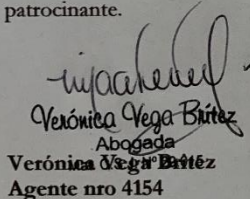 patrocinante.
Verónica Vega Brítez
Abogada
Verónica Vega Brítez
Agente nro 4154